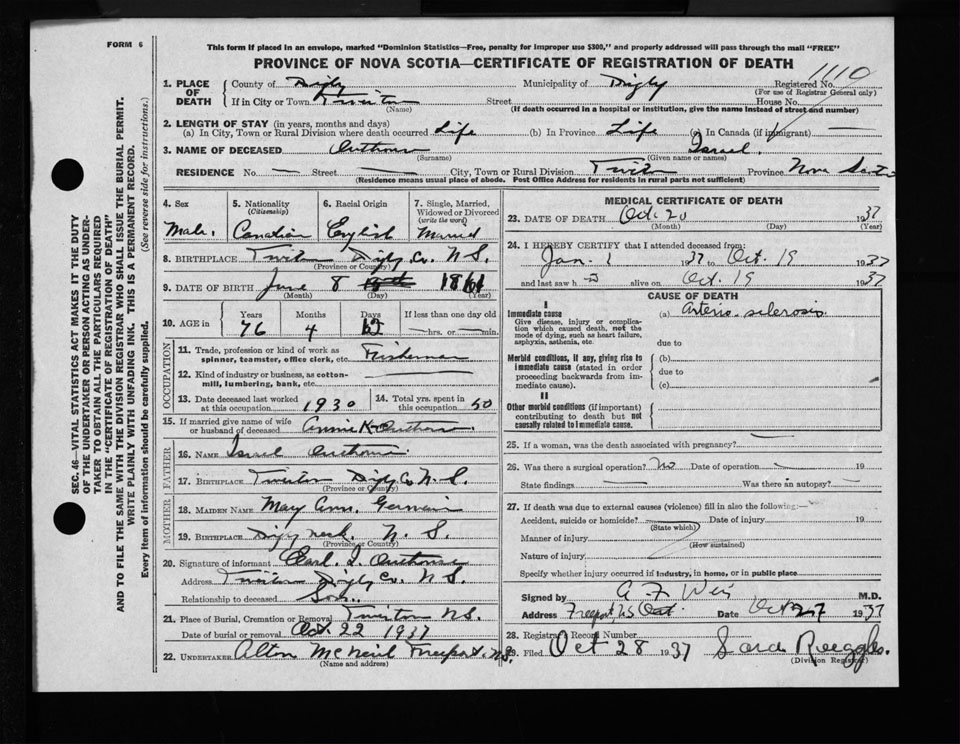 FORM 6
This form if placed in an envelope, marked "Dominion Statistics—Free, penalty for improper use $300," and properly addressed will pass through the mail "FREE"
PROVINCE OF NOVA SCOTIA—CERTIFICATE OF REGISTRATION OF DEATH
1. PLACE OF DEATH
County of Digby Municipality of Digby Registered No. 1110
(For use of Registrar General only)
If in City or Town Tiverton Street House No.
(Name) (If death occurred in a hospital or institution, give the name instead of street and number)
2. LENGTH OF STAY (in years, months and days)
(a) In City, Town or Rural Division where death occurred Life (b) In Province Life (c) In Canada (if immigrant) —
3. NAME OF DECEASED Outhouse Israel.
(Surname) (Given name or names)
RESIDENCE No. — Street — City, Town or Rural Division Tiverton Province Nova Scotia
(Residence means usual place of abode. Post Office Address for residents in rural parts not sufficient)
4. Sex Male.
5. Nationality (Citizenship) Canadian
6. Racial Origin English
7. Single, Married, Widowed or Divorced (write the word) Married
8. BIRTHPLACE Tiverton Digby Co. N.S.
(Province or Country)
9. DATE OF BIRTH June 8 1861
(Month) (Day) (Year)
10. AGE in Years 76 Months 4 Days 12 If less than one day old hrs. or min.
OCCUPATION
11. Trade, profession or kind of work as spinner, teamster, office clerk, etc. Fisherman
12. Kind of industry or business, as cotton-mill, lumbering, bank, etc.
13. Date deceased last worked at this occupation 1930
14. Total yrs. spent in this occupation 50
15. If married give name of wife or husband of deceased Annie K Outhouse
FATHER
16. NAME Israel Outhouse
17. BIRTHPLACE Tiverton Digby Co N.S.
(Province or Country)
MOTHER
18. MAIDEN NAME May Ann. Germain
19. BIRTHPLACE Digby Neck. N.S.
(Province or Country)
20. Signature of informant Carl I. Outhouse
Address Tiverton Digby Co. N.S.
Relationship to deceased Son.
21. Place of Burial, Cremation or Removal Tiverton N.S.
Date of burial or removal Oct. 22 1937
22. UNDERTAKER Alton McNeil Freeport N.S.
(Name and address)
MEDICAL CERTIFICATE OF DEATH
23. DATE OF DEATH Oct. 20 1937
(Month) (Day) (Year)
24. I HEREBY CERTIFY that I attended deceased from:
Jan. 1 1937 to Oct. 19 1937
and last saw h alive on Oct. 19 1937
CAUSE OF DEATH
I
Immediate cause (a) Arterio-sclerosis
Give disease, injury or complication which caused death, not the mode of dying, such as heart failure, asphyxia, asthenia, etc.
due to
Morbid conditions, if any, giving rise to immediate cause (stated in order proceeding backwards from immediate cause).
(b)
due to
(c)
II
Other morbid conditions (if important) contributing to death but not causally related to immediate cause.
25. If a woman, was the death associated with pregnancy? —
26. Was there a surgical operation? No Date of operation — 19
State findings — Was there an autopsy? —
27. If death was due to external causes (violence) fill in also the following:—
Accident, suicide or homicide? Date of injury 19
(State which)
Manner of injury
(How sustained)
Nature of injury
Specify whether injury occurred in industry, in home, or in public place
Signed by A F Weir M.D.
Address Freeport, N.S Date Oct 27 1937
28. Registrar's Record Number
29. Filed Oct 28 1937 Sara Ruggles.
(Division Registrar)
SEC. 46—VITAL STATISTICS ACT MAKES IT THE DUTY
OF THE UNDERTAKER OR PERSON ACTING AS UNDER-
TAKER TO OBTAIN ALL THE PARTICULARS REQUIRED
IN THE "CERTIFICATE OF REGISTRATION OF DEATH"
AND TO FILE THE SAME WITH THE DIVISION REGISTRAR WHO SHALL ISSUE THE BURIAL PERMIT.
WRITE PLAINLY WITH UNFADING INK. THIS IS A PERMANENT RECORD.
Every item of information should be carefully supplied. (See reverse side for instructions.)